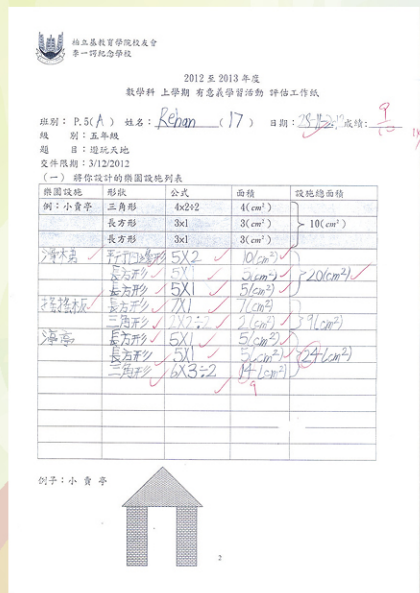 柏立基教育學院校友會
李一諤紀念學校
2012 至 2013 年度
數學科 上學期 有意義學習活動 評估工作紙
班別： P.5(A) 姓名： Rehan (17) 日期： 成績： 9/10
級 別：五年級
題 目：遊玩天地
交件限期：3/12/2012
（一） 將你設計的樂園設施列表
樂園設施 形狀 公式 面積 設施總面積
例：小賣亭 三角形 4x2÷2 4(cm²)
長方形 3x1 3(cm²) 10(cm²)
長方形 3x1 3(cm²)
平行四邊形 5X2 10(cm²)
長方形 5X1 5(cm²) 20(cm²)
長方形 5X1 5(cm²)
搖搖板 長方形 7X1 7(cm²)
三角形 2X2÷2 2(cm²) 9(cm²)
涼亭 長方形 5X1 5(cm²)
長方形 5X1 5(cm²) 24(cm²)
三角形 6X3÷2 14(cm²)
9
例子：小 賣 亭
2